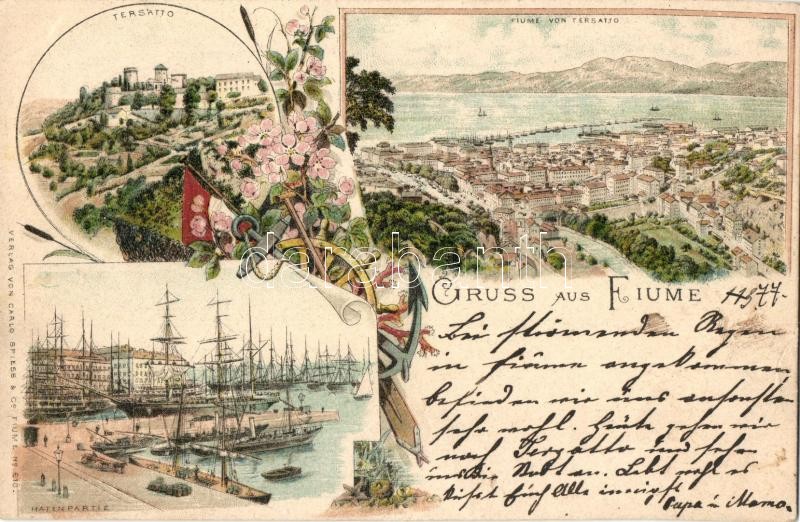 TERSATTO
FIUME VON TERSATTO
darabanth
GRUSS AUS FIUME
Bei strömenden Regen
in Fiume angekommen
befinden wir uns ansonsten
sehr wohl. Heute gehen wir
nach Tersatto und sehen
uns die Stadt an. Lebt wohl es
küsst Euch Alle innigst
Papa u Mama.
HAFENPARTIE
VERLAG VON CARLO SPIESS & Co FIUME